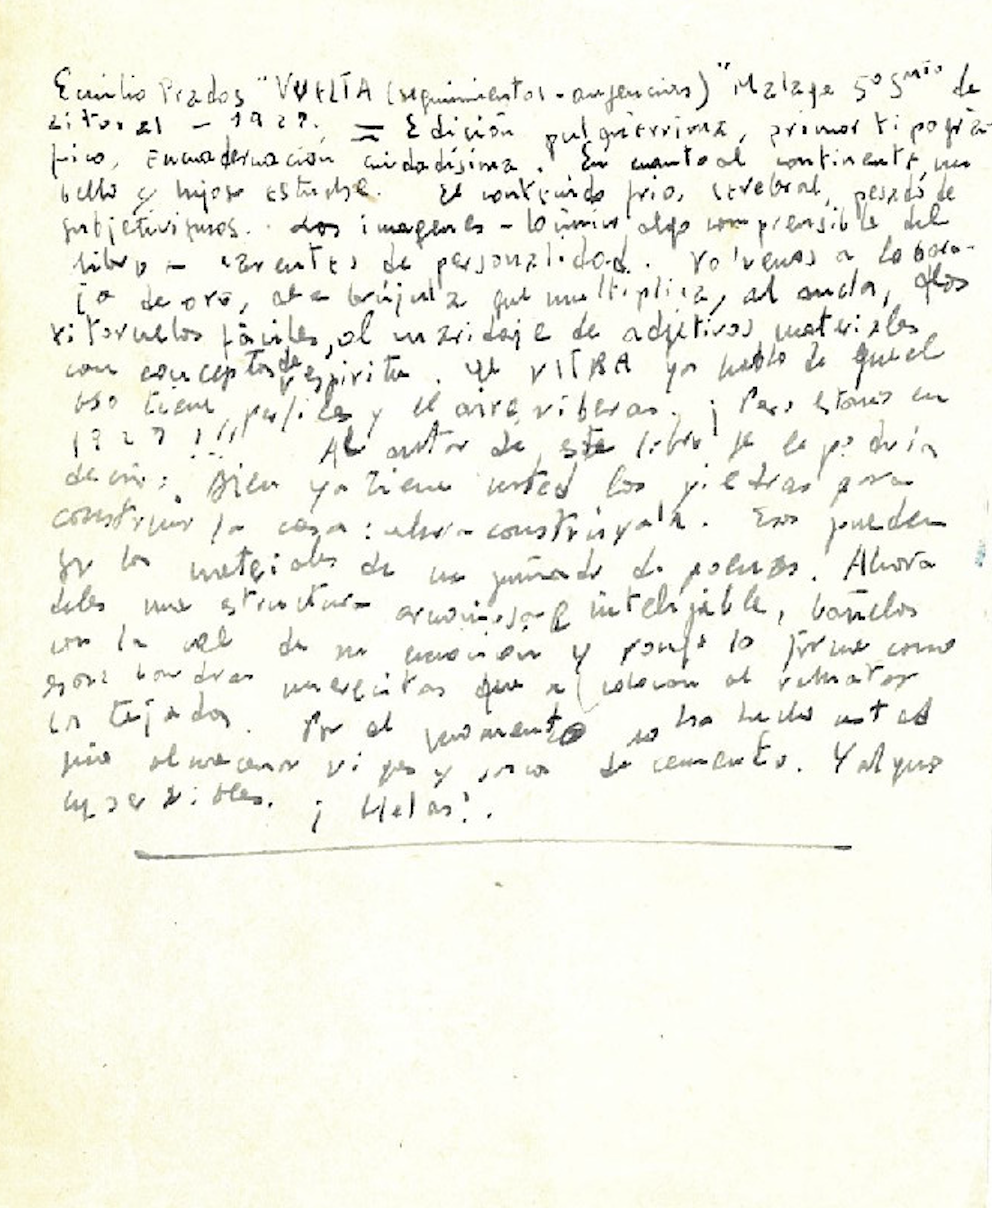 Emilio Prados "VUELTA (seguimientos - ausencias)" Malaga 5º Smto de
Litoral - 1927. = Edición pulquérrima, primor tipográ-
fico, Encuadernación cuidadísima. En cuanto al continente, un
bello y lujoso estuche. El contenido frio, cerebral, pesado de
subjetivismos. Las imagenes - lo único algo comprensible del
libro - carentes de personalidad. Volvemos a la bara-
ja de oro, a la brújula que multiplica, al ancla, a los
ritornelos fáciles, al maridaje de adjetivos materiales
con conceptos de espiritu. Ya VITRA ya hablo de que el
eso tiene perfiles y el aire viboras. ¡Pero estamos en
1927!!! Al autor de este libro se le podria
decir: Bien ya tiene usted las piedras para
construir la casa: ahora constrúyala. Esos pueden
ser los materiales de un puñado de poemas. Ahora
deles una estructura armoniosa e inteligible, bañelos
con la cal de su emoción y ponga la firma como
esas banderas que se colocan al rematar
los tejados. Por el momento no ha hecho usted
sino almacenar vigas y sacos de cemento. Y algunos
inservibles. ¡Helas!.